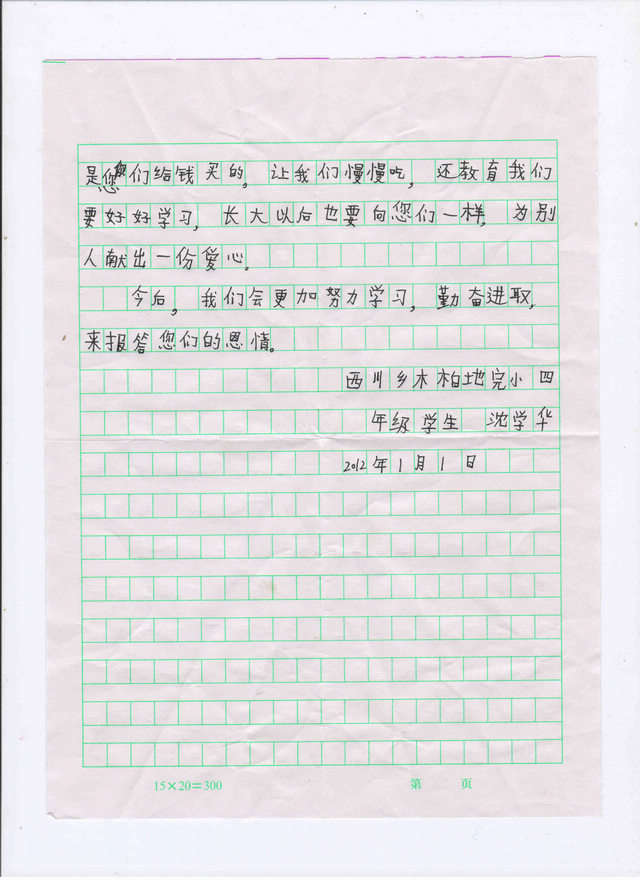 是您们给钱买的。让我们慢慢吃，还教育我们
要好好学习，长大以后也要向您们一样，为别
人献出一份爱心。
今后，我们会更加努力学习，勤奋进取，
来报答您们的恩情。
西川乡木柏地完小四
年级学生 沈学华
2012年1月1日
15×20=300 第 页